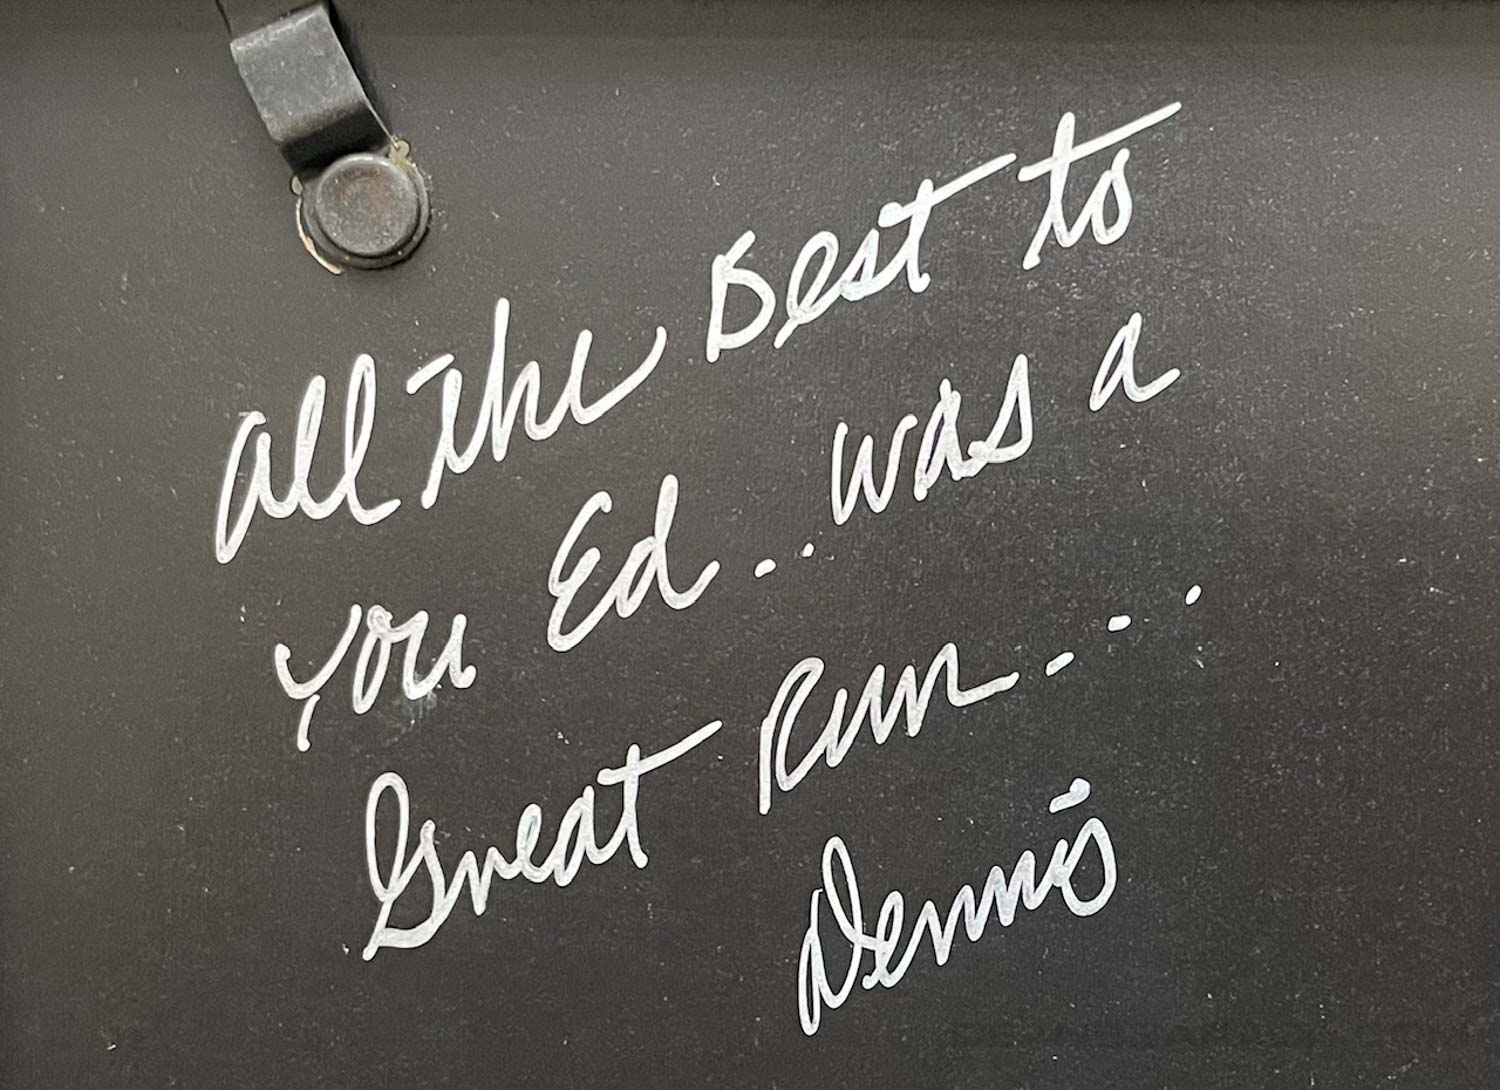 All the Best to
you Ed .. was a
Great Run ...
Dennis